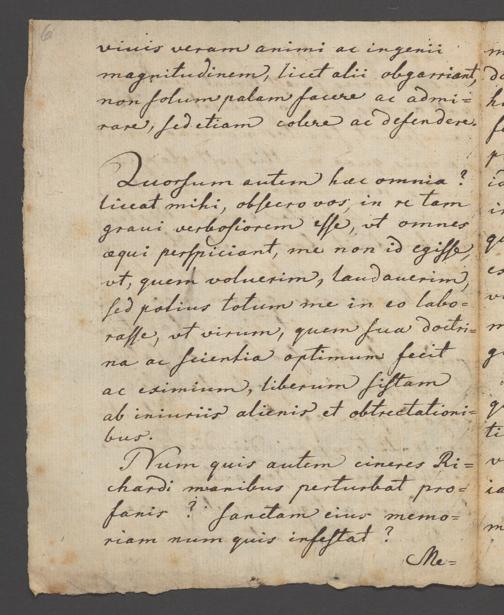 6
viuis veram animi ac ingenii
magnitudinem, licet alii obgarriant,
non solum palam facere ac admi=
rare, sed etiam colere ac defendere.
Quorsum autem hæc omnia?
liceat mihi, obsecro vos, in re tam
graui verbosiorem esse, vt omnes
æqui perspiciant, me non id egisse,
vt, quem voluerim, laudauerim,
sed potius totum me in eo labo=
rasse, vt virum, quem sua doctri=
na ac scientia optimum fecit
ac eximium, liberum sistam
ab iniuriis alienis et obtrectationi=
bus.
Num quis autem cineres Ri=
chardi manibus perturbat pro=
fanis? sanctam eius memo=
riam num quis infestat?
Me=